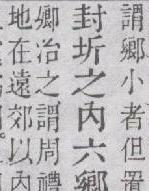 謂鄉小者但置
封圻之內六鄉
鄉治之謂周禮
地在遠郊以內